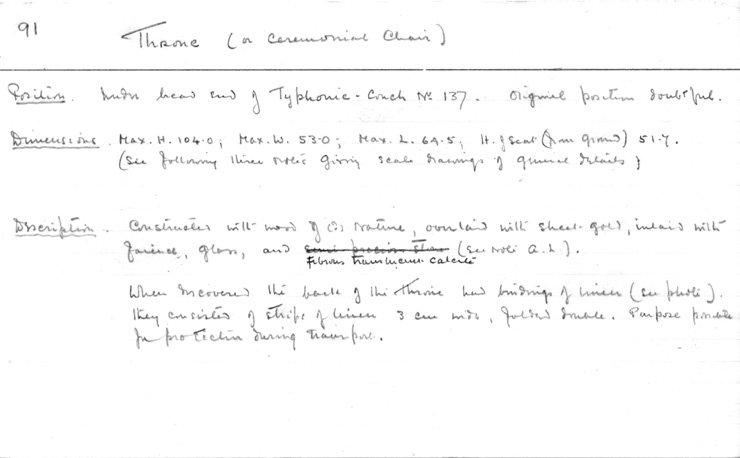 91
Throne (or Ceremonial Chair)
Position. Under head end of Typhonic-Couch No 137. Original position doubtful.
Dimensions. Max. H. 104.0; Max. W. 53.0; Max. L. 64.5; H. of Seat (from ground) 51.7.
(See following three notes giving scale drawings of general details)
Description. Constructed with wood of (?) nature, overlaid with sheet-gold, inlaid with
faience, glass, and semi precious stone (see note A.L).
Fibrous translucent calcite
When discovered the back of the throne had bindings of linen (see photo).
They consisted of strips of linen 3 cm wide, folded double. Purpose possible
for protection during transport.